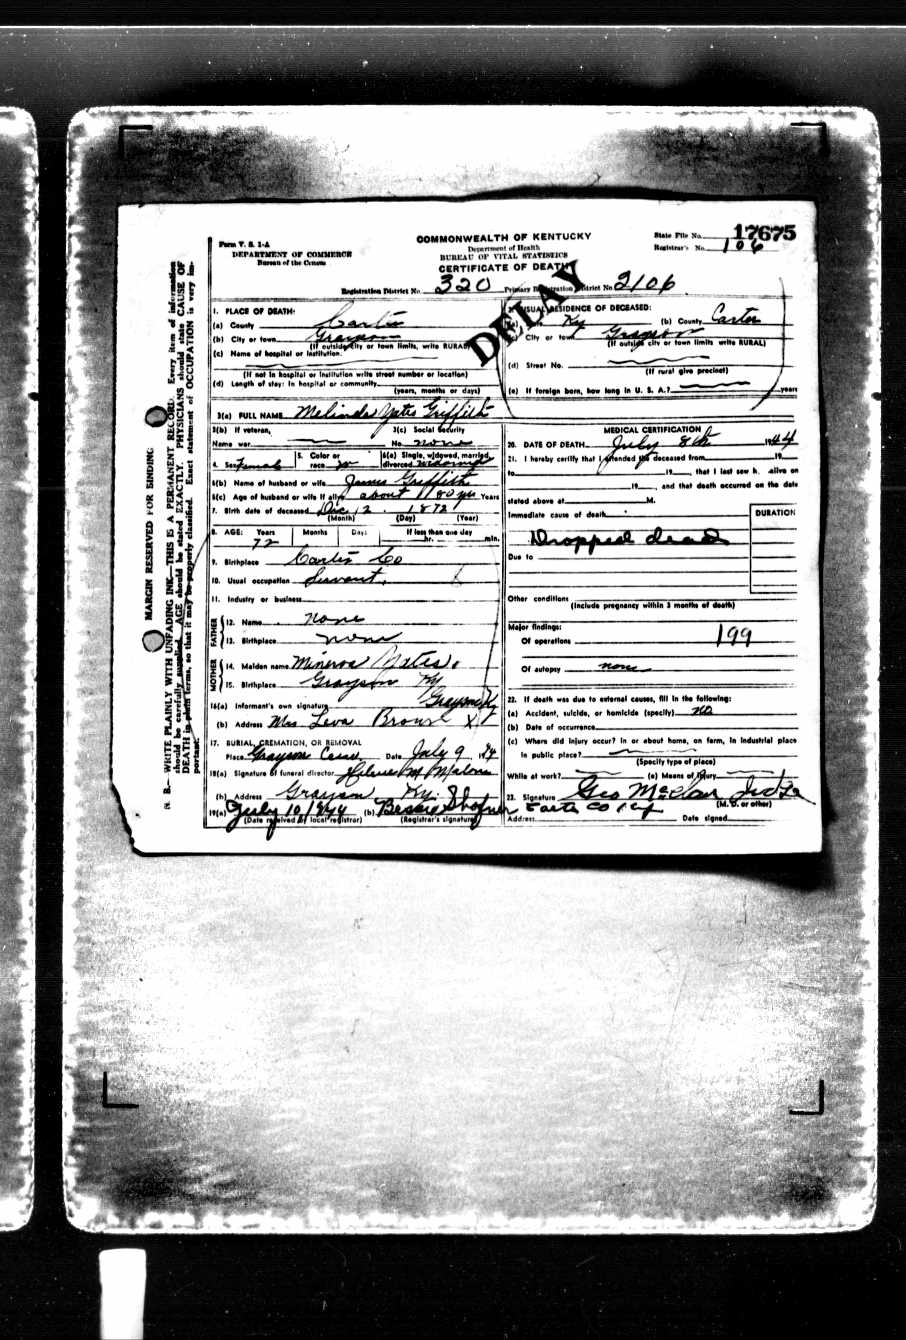 Form V. S. 1-A
DEPARTMENT OF COMMERCE
Bureau of the Census
COMMONWEALTH OF KENTUCKY
Department of Health
BUREAU OF VITAL STATISTICS
CERTIFICATE OF DEATH
State File No. 17675
Registrar's No. 106
Registration District No. 320 Primary Registration District No. 2106
DELAY
1. PLACE OF DEATH:
(a) County Carter
(b) City or town Grayson
(If outside city or town limits, write RURAL)
(c) Name of hospital or institution:
(If not in hospital or institution write street number or location)
(d) Length of stay: In hospital or community
(years, months or days)
2. USUAL RESIDENCE OF DECEASED:
Ky (b) County Carter
(c) City or town Grayson
(If outside city or town limits write RURAL)
(d) Street No.
(If rural give precinct)
(e) If foreign born, how long in U. S. A.? years
3(a) FULL NAME Melinda Yates Griffith
3(b) If veteran, 3(c) Social Security
Name war No. none
4. Sex Female 5. Color or race W 6(a) Single, widowed, married, divorced
6(b) Name of husband or wife James Griffith
6(c) Age of husband or wife if alive about 80 yrs Years
7. Birth date of deceased Dec 2 1872
(Month) (Day) (Year)
8. AGE: Years Months Days If less than one day
72 hr. min.
9. Birthplace Carter Co
10. Usual occupation Servant.
11. Industry or business
FATHER
12. Name none
13. Birthplace none
MOTHER
14. Maiden name Minerva Yates.
15. Birthplace Grayson Ky
16(a) Informant's own signature Grayson Ky
(b) Address Mrs Leva Brown X
17. BURIAL, CREMATION, OR REMOVAL
Place Grayson Cem Date July 9, 44
18(a) Signature of funeral director M Malone
(b) Address Grayson Ky.
19(a) July 10/1944 (b) Bessie Shafner
(Date received by local registrar) (Registrar's signature)
MEDICAL CERTIFICATION
20. DATE OF DEATH July 8th 1944
21. I hereby certify that I attended the deceased from 19
to 19 , that I last saw h. alive on
19 , and that death occurred on the date
stated above at M.
Immediate cause of death DURATION
Dropped dead
Due to
Other conditions
(Include pregnancy within 3 months of death)
Major findings:
Of operations 199
Of autopsy none
22. If death was due to external causes, fill in the following:
(a) Accident, suicide, or homicide (specify) no
(b) Date of occurrence
(c) Where did injury occur? In or about home, on farm, in industrial place
in public place?
(Specify type of place)
While at work? (e) Means of injury
23. Signature Geo McClair Judge
(M. D. or other)
Carter Co Ky
Address Date signed
MARGIN RESERVED FOR BINDING
N. B.—WRITE PLAINLY WITH UNFADING INK—THIS IS A PERMANENT RECORD. Every item of information
should be carefully supplied. AGE should be stated EXACTLY. PHYSICIANS should state CAUSE OF
DEATH in plain terms, so that it may be properly classified. Exact statement of OCCUPATION is very im-
portant.